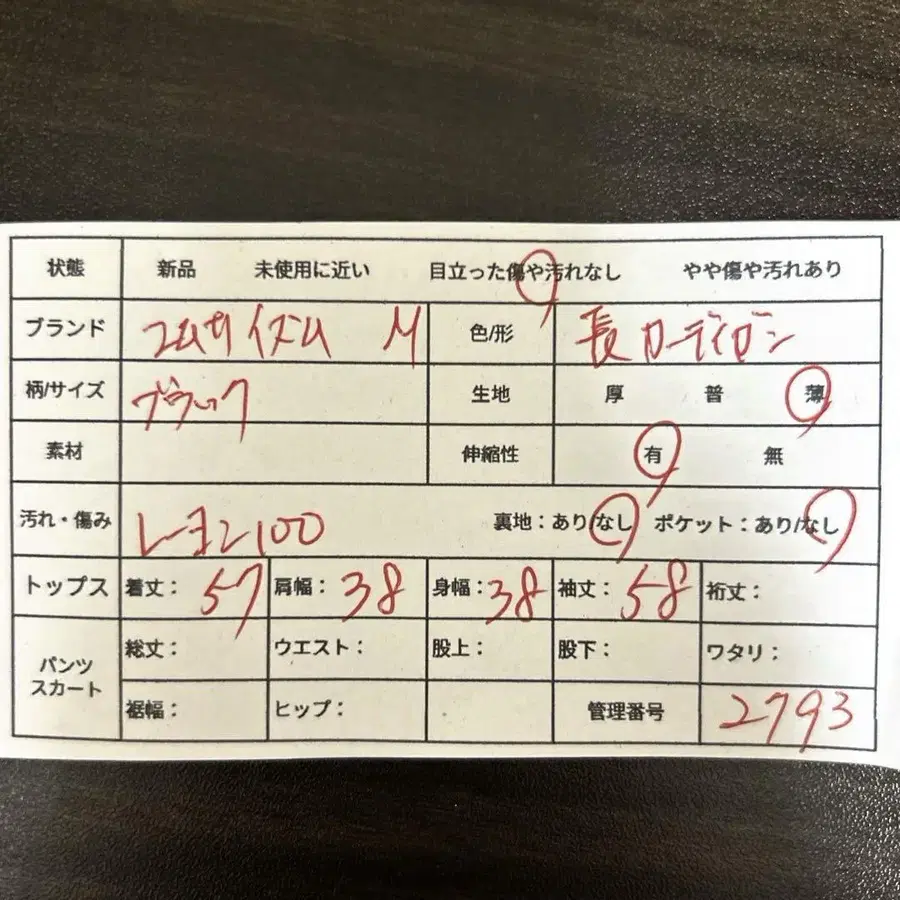 状態 新品 未使用に近い 目立った傷や汚れなし やや傷や汚れあり
ブランド コムサイズム M 色/形 長カーディガン
柄/サイズ ブラック 生地 厚 普 薄
素材 伸縮性 有 無
汚れ・傷み レーヨン100 裏地:あり/なし ポケット:あり/なし
トップス 着丈: 57 肩幅: 38 身幅: 38 袖丈: 58 裄丈:
パンツ スカート 総丈: ウエスト: 股上: 股下: ワタリ:
裾幅: ヒップ: 管理番号 2793